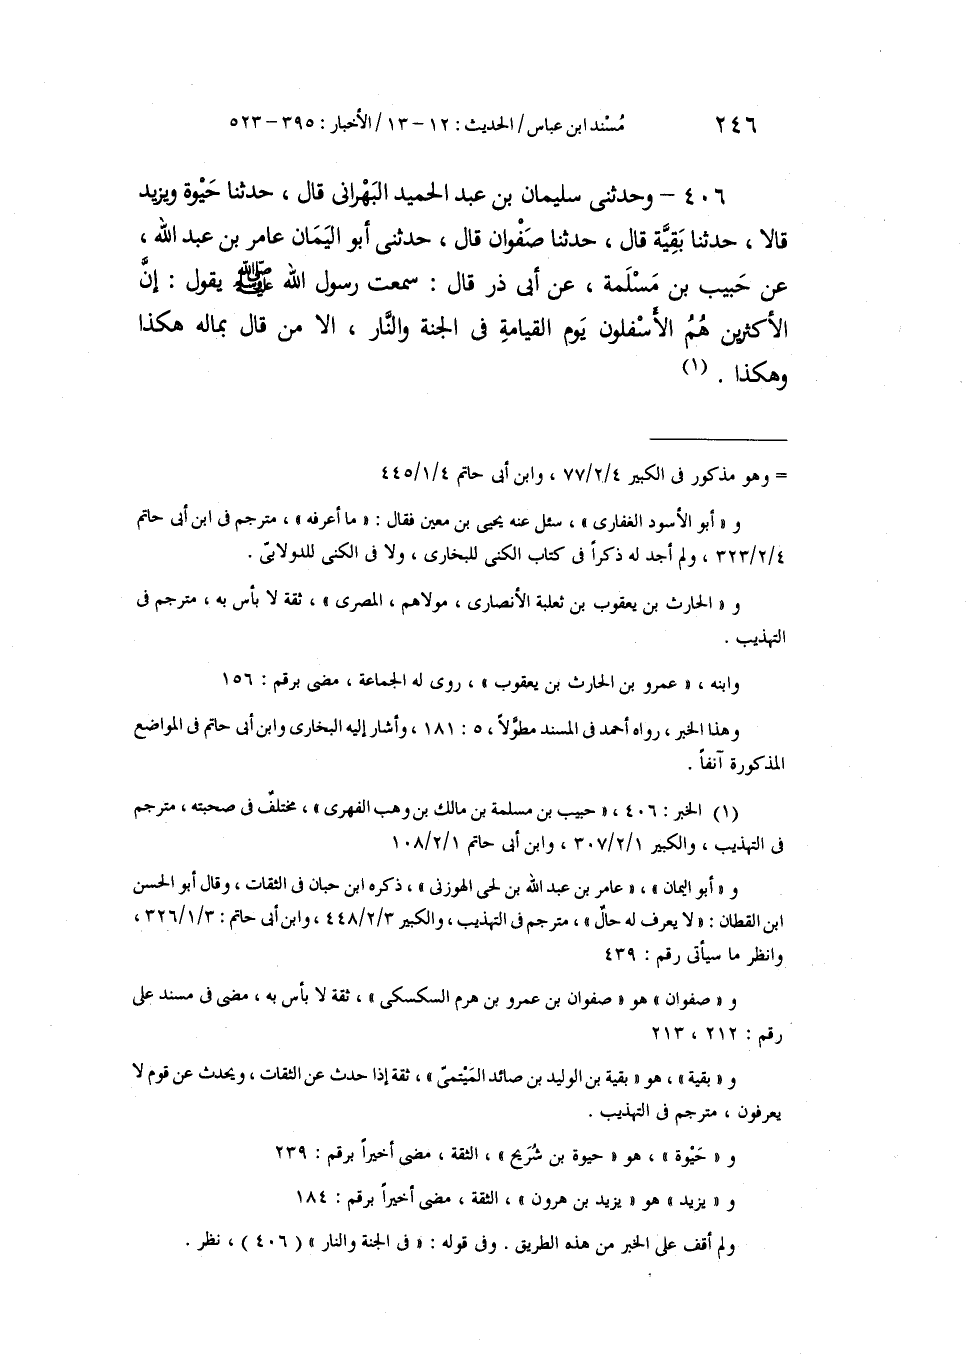 ٢٤٦ مُسْند ابن عباس / الحديث : ١٢ – ١٣ / الأخبار : ٣٩٥ – ٥٢٣
٤٠٦ – وحدثنى سليمان بن عبد الحميد البَهْرانى قال ، حدثنا حَيْوة ويزيد
قالا ، حدثنا بَقِيَّة قال ، حدثنا صَفْوان قال ، حدثنى أبو اليَمَان عامر بن عبد الله ،
عن حَبيب بن مَسْلَمة ، عن أبى ذر قال : سمعت رسول الله ﷺ يقول : إنَّ
الأكثرين هُمُ الأَسْفلون يَوم القيامةِ فى الجنة والنَّار ، الا من قال بماله هكذا
وهكذا . (١)
= وهو مذكور فى الكبير ٧٧/٢/٤ ، وابن أبى حاتم ٤٤٥/١/٤
و « أبو الأسود الغفارى » ، سئل عنه يحيى بن معين فقال : « ما أعرفه » ، مترجم فى ابن أبى حاتم
٣٢٣/٢/٤ ، ولم أجد له ذكراً فى كتاب الكنى للبخارى ، ولا فى الكنى للدولابىّ .
و « الحارث بن يعقوب بن ثعلبة الأنصارى ، مولاهم ، المصرى » ، ثقة لا بأس به ، مترجم فى
التهذيب .
وابنه ، « عمرو بن الحارث بن يعقوب » ، روى له الجماعة ، مضى برقم : ١٥٦
وهذا الخبر ، رواه أحمد فى المسند مطوَّلاً ، ٥ : ١٨١ ، وأشار إليه البخارى وابن أبى حاتم فى المواضع
المذكورة آنفاً .
(١) الخبر : ٤٠٦ ، « حبيب بن مسلمة بن مالك بن وهب الفهرى » ، مختلفٌ فى صحبته ، مترجم
فى التهذيب ، والكبير ٣٠٧/٢/١ ، وابن أبى حاتم ١٠٨/٢/١
و « أبو اليمان » ، « عامر بن عبد الله بن لحى الهوزنى » ، ذكره ابن حبان فى الثقات ، وقال أبو الحسن
ابن القطان : « لا يعرف له حالٌ » ، مترجم فى التهذيب ، والكبير ٤٤٨/٢/٣ ، وابن أبى حاتم : ٣٢٦/١/٣ ،
وانظر ما سيأتى رقم : ٤٣٩
و « صفوان » هو « صفوان بن عمرو بن هرم السكسكى » ، ثقة لا بأس به ، مضى فى مسند على
رقم : ٢١٢ ، ٢١٣
و « بقية » ، هو « بقية بن الوليد بن صائد المَيْتمىّ » ، ثقة إذا حدث عن الثقات ، ويحدث عن قوم لا
يعرفون ، مترجم فى التهذيب .
و « حَيْوة » ، هو « حيوة بن شُرَيح » ، الثقة ، مضى أخيراً برقم : ٢٣٩
و « يزيد » هو « يزيد بن هرون » ، الثقة ، مضى أخيراً برقم : ١٨٤
ولم أقف على الخبر من هذه الطريق . وفى قوله : « فى الجنة والنار » ( ٤٠٦ ) ، نظر .